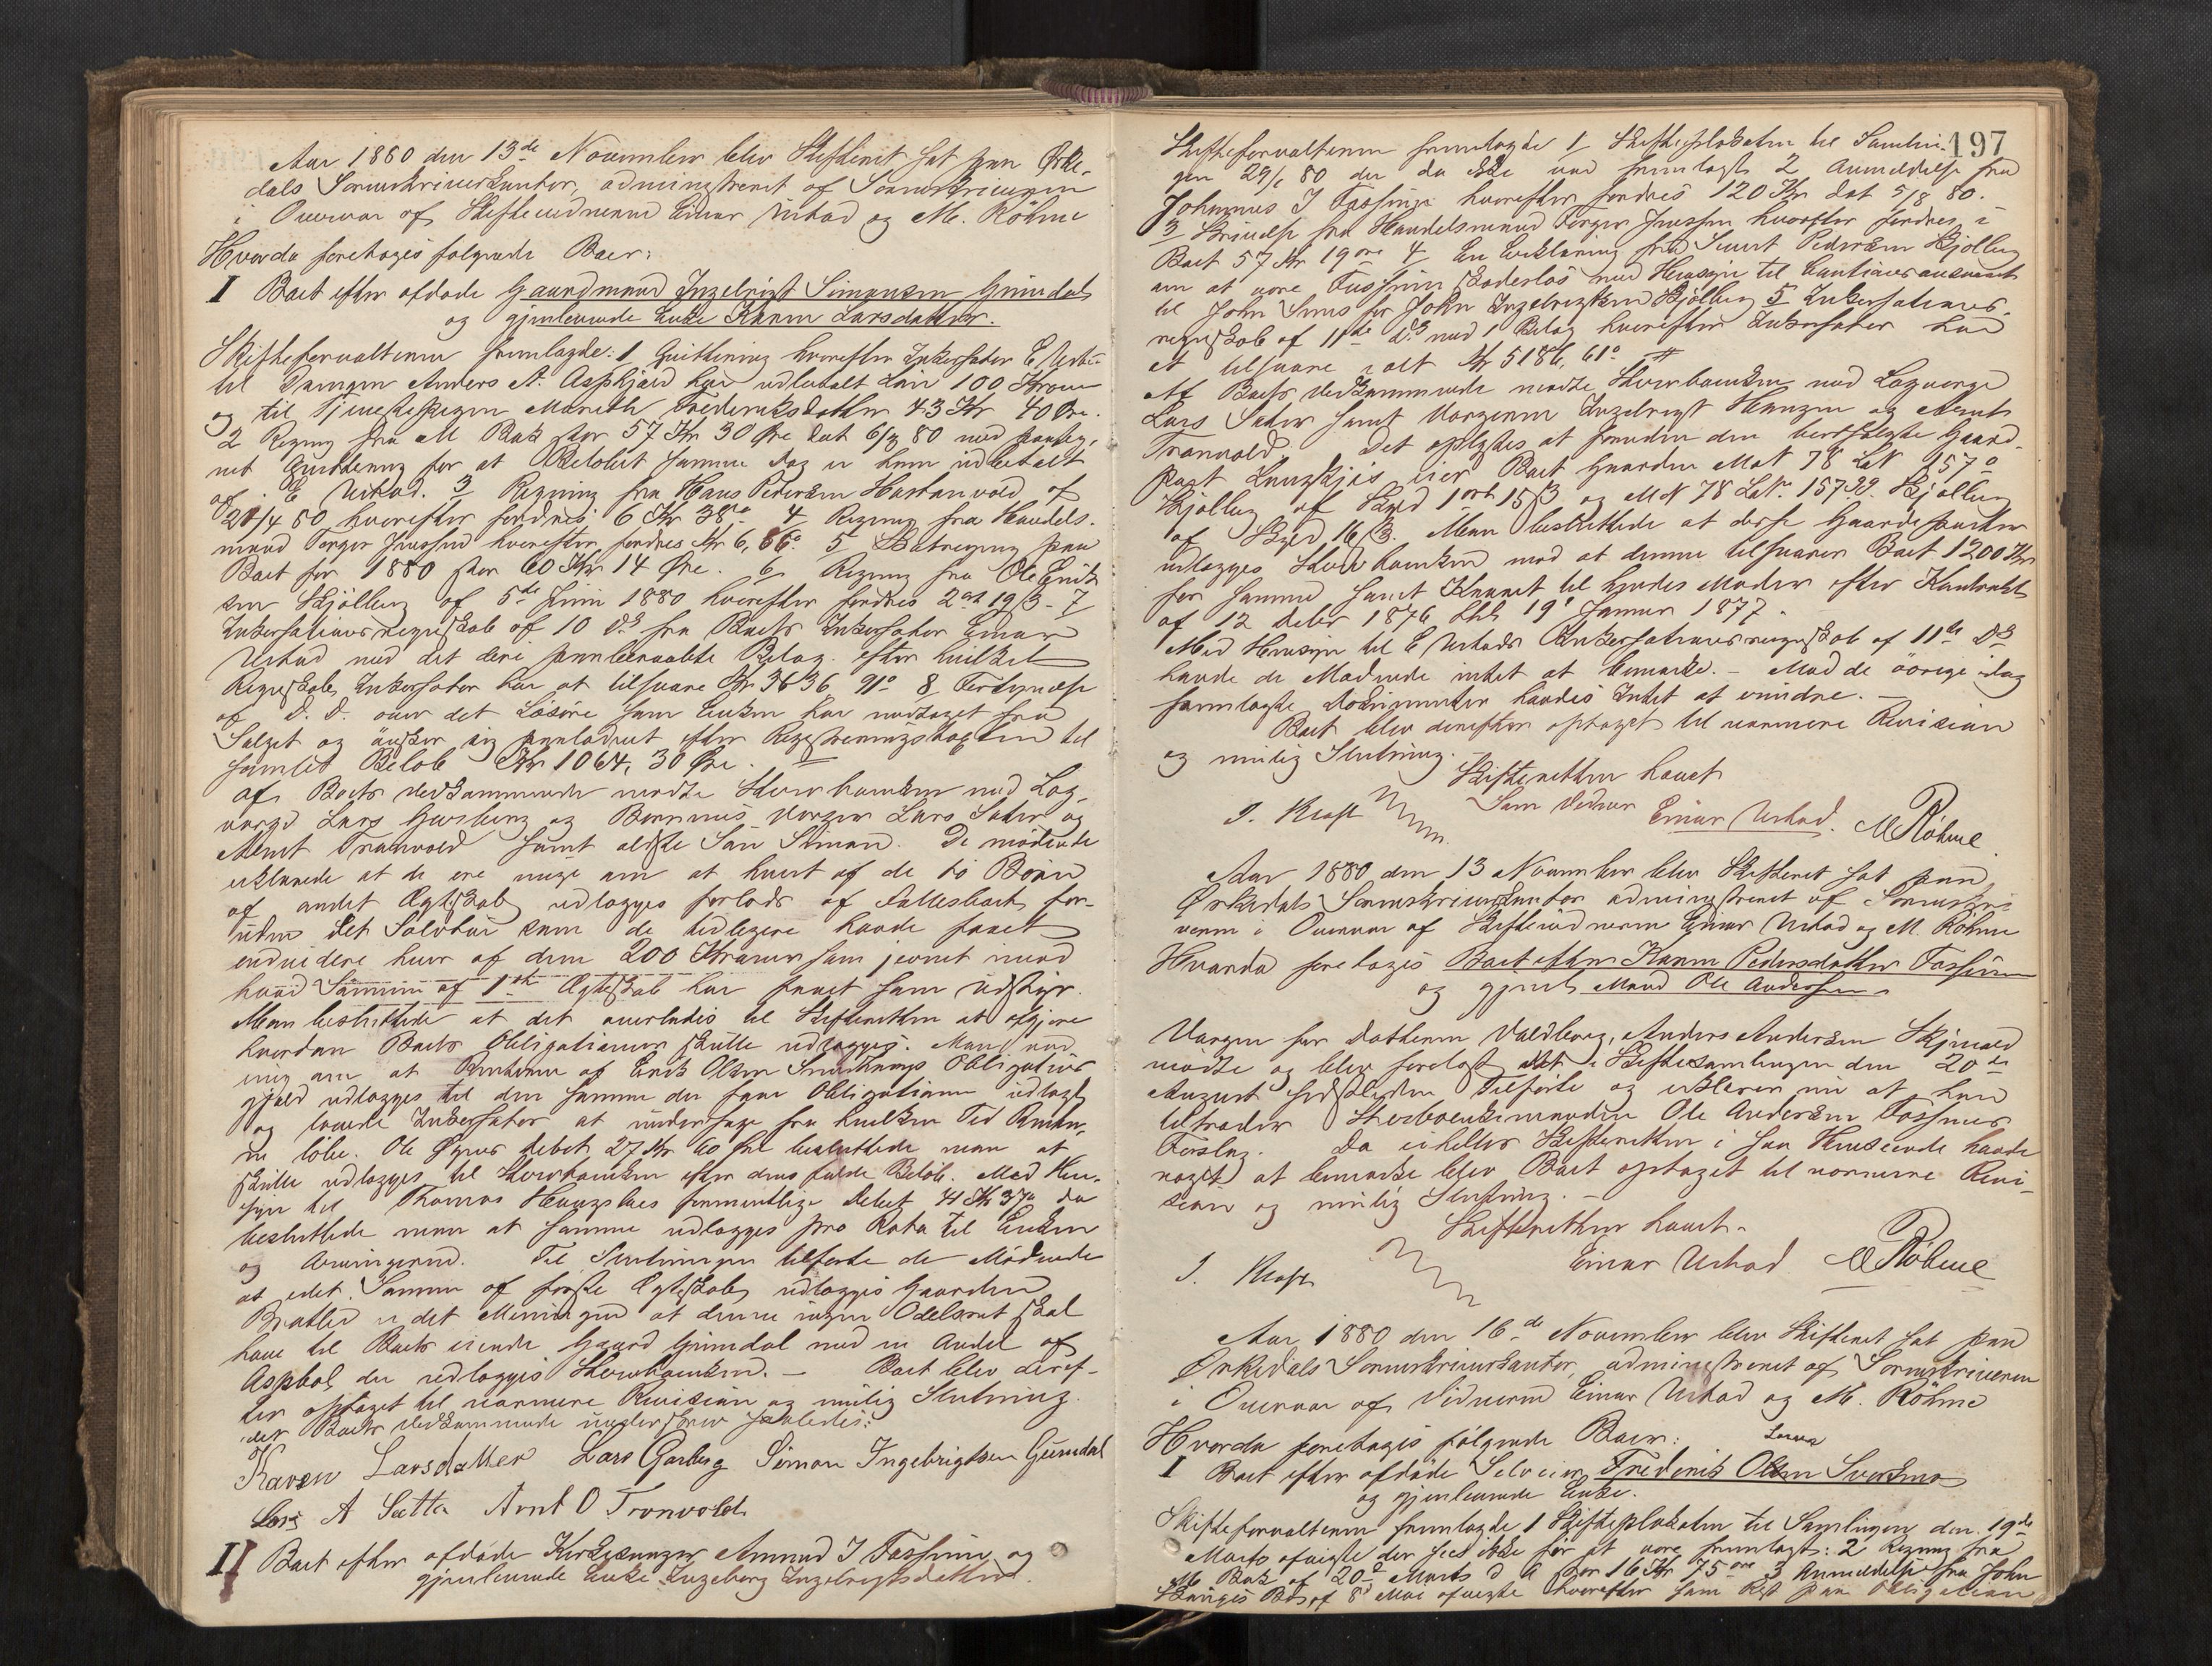 Aar 1880 den 13de November blev Skifteret sat paa Orke-
dals Sorenskriverkontor, administreret af Sorenskriveren
i Overvær af Skiftevidnerne Einar Urstad og M. Röhme
Hvorda foretoges følgende Boer:
I Boet efter afdøde Gaardmand Ingebrigt Simonsen Gumdal
og gjenlevende Enke Karen Larsdatter.
Skifteforvalteren fremlagde: 1 Qvittering hvorefter Inkassator E. Urstad
til Drengen Anders A. Aspkjær har udbetalt Løn 100 Kroner
og til Tjenestepigen Mareth Frederiksdatter 43 Kr 40 Øre.
2 Regning fra M Bak stor 57 Kr 30 Øre dat 6/3 80 med paateg-
net Qvittering for at Beløbet samme Dag er ham udbetalt
af E Urstad. 3 Regning fra Hans Pedersen Hostonvold af
21/4 80 hvorefter fordres 6 Kr 38 ø 4 Regning fra Handels-
mand Torger Jenssen hvorefter fordres Kr 6,66 ø. 5 Skatregning paa
Boet for 1880 stor 60 Kr 14 Øre. 6 Regning fra Ole Erik
sen Skjølberg af 5de Juni 1880 hvorefter fordres 2 ort 19 ß - 7
Inkassationsregnskab af 10 ds fra Boets Inkassator Einar
Urstad med det deri paaberaabte Bilag. efter hvilket
Regnskab, Inkassator har at tilsvare Kr 3636, 91 ø 8 Fortegnelse
af D. D. over det Løsøre som Enken har modtaget fra
Salget og ønsker sig udlagt efter Registreringstaxten til
samlet Beløb Kr 1064, 30 Øre.
Af Boets Vedkommende mødte Stervboenken med Lag-
værge Lars Garberg og Børnenes Værger Lars Sæter og
Arnt Tranvold samt ældste Søn Simon. De mødende
erklærede at de ere enige om at hvert af de to Børn
af andet Ægteskab udlægges forlods af Fællesboet for-
uden det Sølvtøi som de tidligere havde faaet
endvidere hver af dem 200 Kroner som jevnet imod
hvad Sønnen af 1ste Ægteskab har faaet som Udstyr.
Man besluttede at det overlades til Skifteretten at afgjøre
hvordan Boets Obligationer skulle udlægges. Man var
enig om at Renterne af Erik Olsen Obligations
gjæld udlægges til den samme der faar Obligationen udlagt
og lovede Inkassator at undersøge fra hvilken Tid Renter-
ne løbe. Ole Debet, 27 Kr 60 Øre besluttede man at
skulle udlægges til Stervboenken efter dens fulde Beløb. Med Hen-
syn til Thomas formentlige Debet 41 Kr 37 ø da
besluttede man at samme udlægges pro Rata til Enken
og Arvingerne. Til Slutningen tilførte de Mødende
at idet Sønnen af første Ægteskab udlægges Gaarden
er det Meningen at denne ingen Odelsret skal
have til Boets eiende Gaard Gumdal med en Andel af
Aspbøl, der udlægges Stervboenken. — Boet blev deref-
ter optaget til nærmere Revision og mulig Slutning.
idet Boets Vedkommende underskrev saaledes:
Karen Larsdatter Lars Garberg Simon Ingebrigtsen Gumdal
Lars A Sætter Arnt O Tronvold
II Boet efter afdøde Kirkesanger Amund J Fossum og
gjenlevende Enke Ingeborg Ingebrigtsdatter.
197
Skifteforvalteren fremlagde 1 Skifteplakaten til Samlin-
gen 29/1 80 der da ikke var fremlagt 2 Anmeldelse fra
Johannes J Fossum hvorefter fordres 120 Kr dat 5/8 80.
3 Skrivelse fra Handelsmand Torger Jenssen hvorefter fordres i
Boet 57 Kr 19 øre 4 En Erklæring fra Sivert Pedersen Skjølberg
om at være Fossum skadesløs med Hensyn til Cautionsansvaret
til John for John Ingebrigtsen Skjølberg 5 Inkassations-
regnskab af 11te ds med 1 Bilag hvorefter Inkassator har
at tilsvare ialt Kr 5186, 61 ø
Af Boets Vedkommende mødte Stervboenken med Lagværge
Lars Sæter samt Værgerne Ingebrigt og Arnt
Tranvold. Det oplystes at foruden den Gaard-
part eier Boet Gaarden M N 78 L N 157 a
Skjølberg af Skyld 1 ort 15 ß og M N 78 L N. 157 Skjølberg
af Skyld 16 ß. Man besluttede at disse Gaardeparter
udlægges Stervboenken mod at denne tilsvarer Boet 1200 Kr
for samme samt Kaaret til hendes Moder efter Kontrakt
af 12 Debr 1876 thl 19' Januar 1877.
Med Hensyn til E Urstads Inkassationsregnskab af 11te ds
havde de Mødende intet at bemærke. — Mod de øvrige idag
fremlagte Dokumenter havdes Intet at erindre. —
Boet blev derefter optaget til nærmere Revision
og mulig Slutning.
Skifteretten hævet
J. Kraft Som Vidner Einar Urstad. M Röhme
Aar 1880 den 13 November blev Skifteret sat paa
Orkedals Sorenskriverkontor administreret af Sorenskri-
veren i Overvær af Skiftevidnerne Einar Urstad og M. Röhme
Hvorda foretoges Boet efter Karen Pedersdatter Fossum
og gjenl. Mand Ole Anderssen
Værgen for Datteren Valdborg, Anders Andersen Skjevald
mødte og blev forelagt det i Skiftesamlingen den 20de
August sidstleden Tilførte og erklærer nu at han
tiltræder Stervboenkemanden Ole Andersen Fossums
Forslag. Da eiheller Skifteretten i saa Henseende havde
noget at bemærke blev Boet optaget til nærmere Revi-
sion og mulig Slutning. —
Skifteretten hævet.
J. Kraft Einar Urstad M Röhme
Aar 1880 den 16de November blev Skifteret sat paa
Orkedals Sorenskriverkontor, administreret af Sorenskriveren
i Overvær af Vidnerne Einar Urstad og M. Röhme
Hvorda foretoges følgende Boer:
I Boet efter afdøde Selveier Frederik Olsen Svorkmo
og gjenlevende Enke.
Skifteforvalteren fremlagde 1 Skifteplakaten til Samlingen den 19de
Marts afvigte der sees ikke før at være fremlagt: 2 Regning fra
M Bak af 20de Marts d A stor 16 Kr 75 øre 3 Anmeldelse fra John
Bds af 8' Mai afvigte hvorefter som Rest paa Obligation